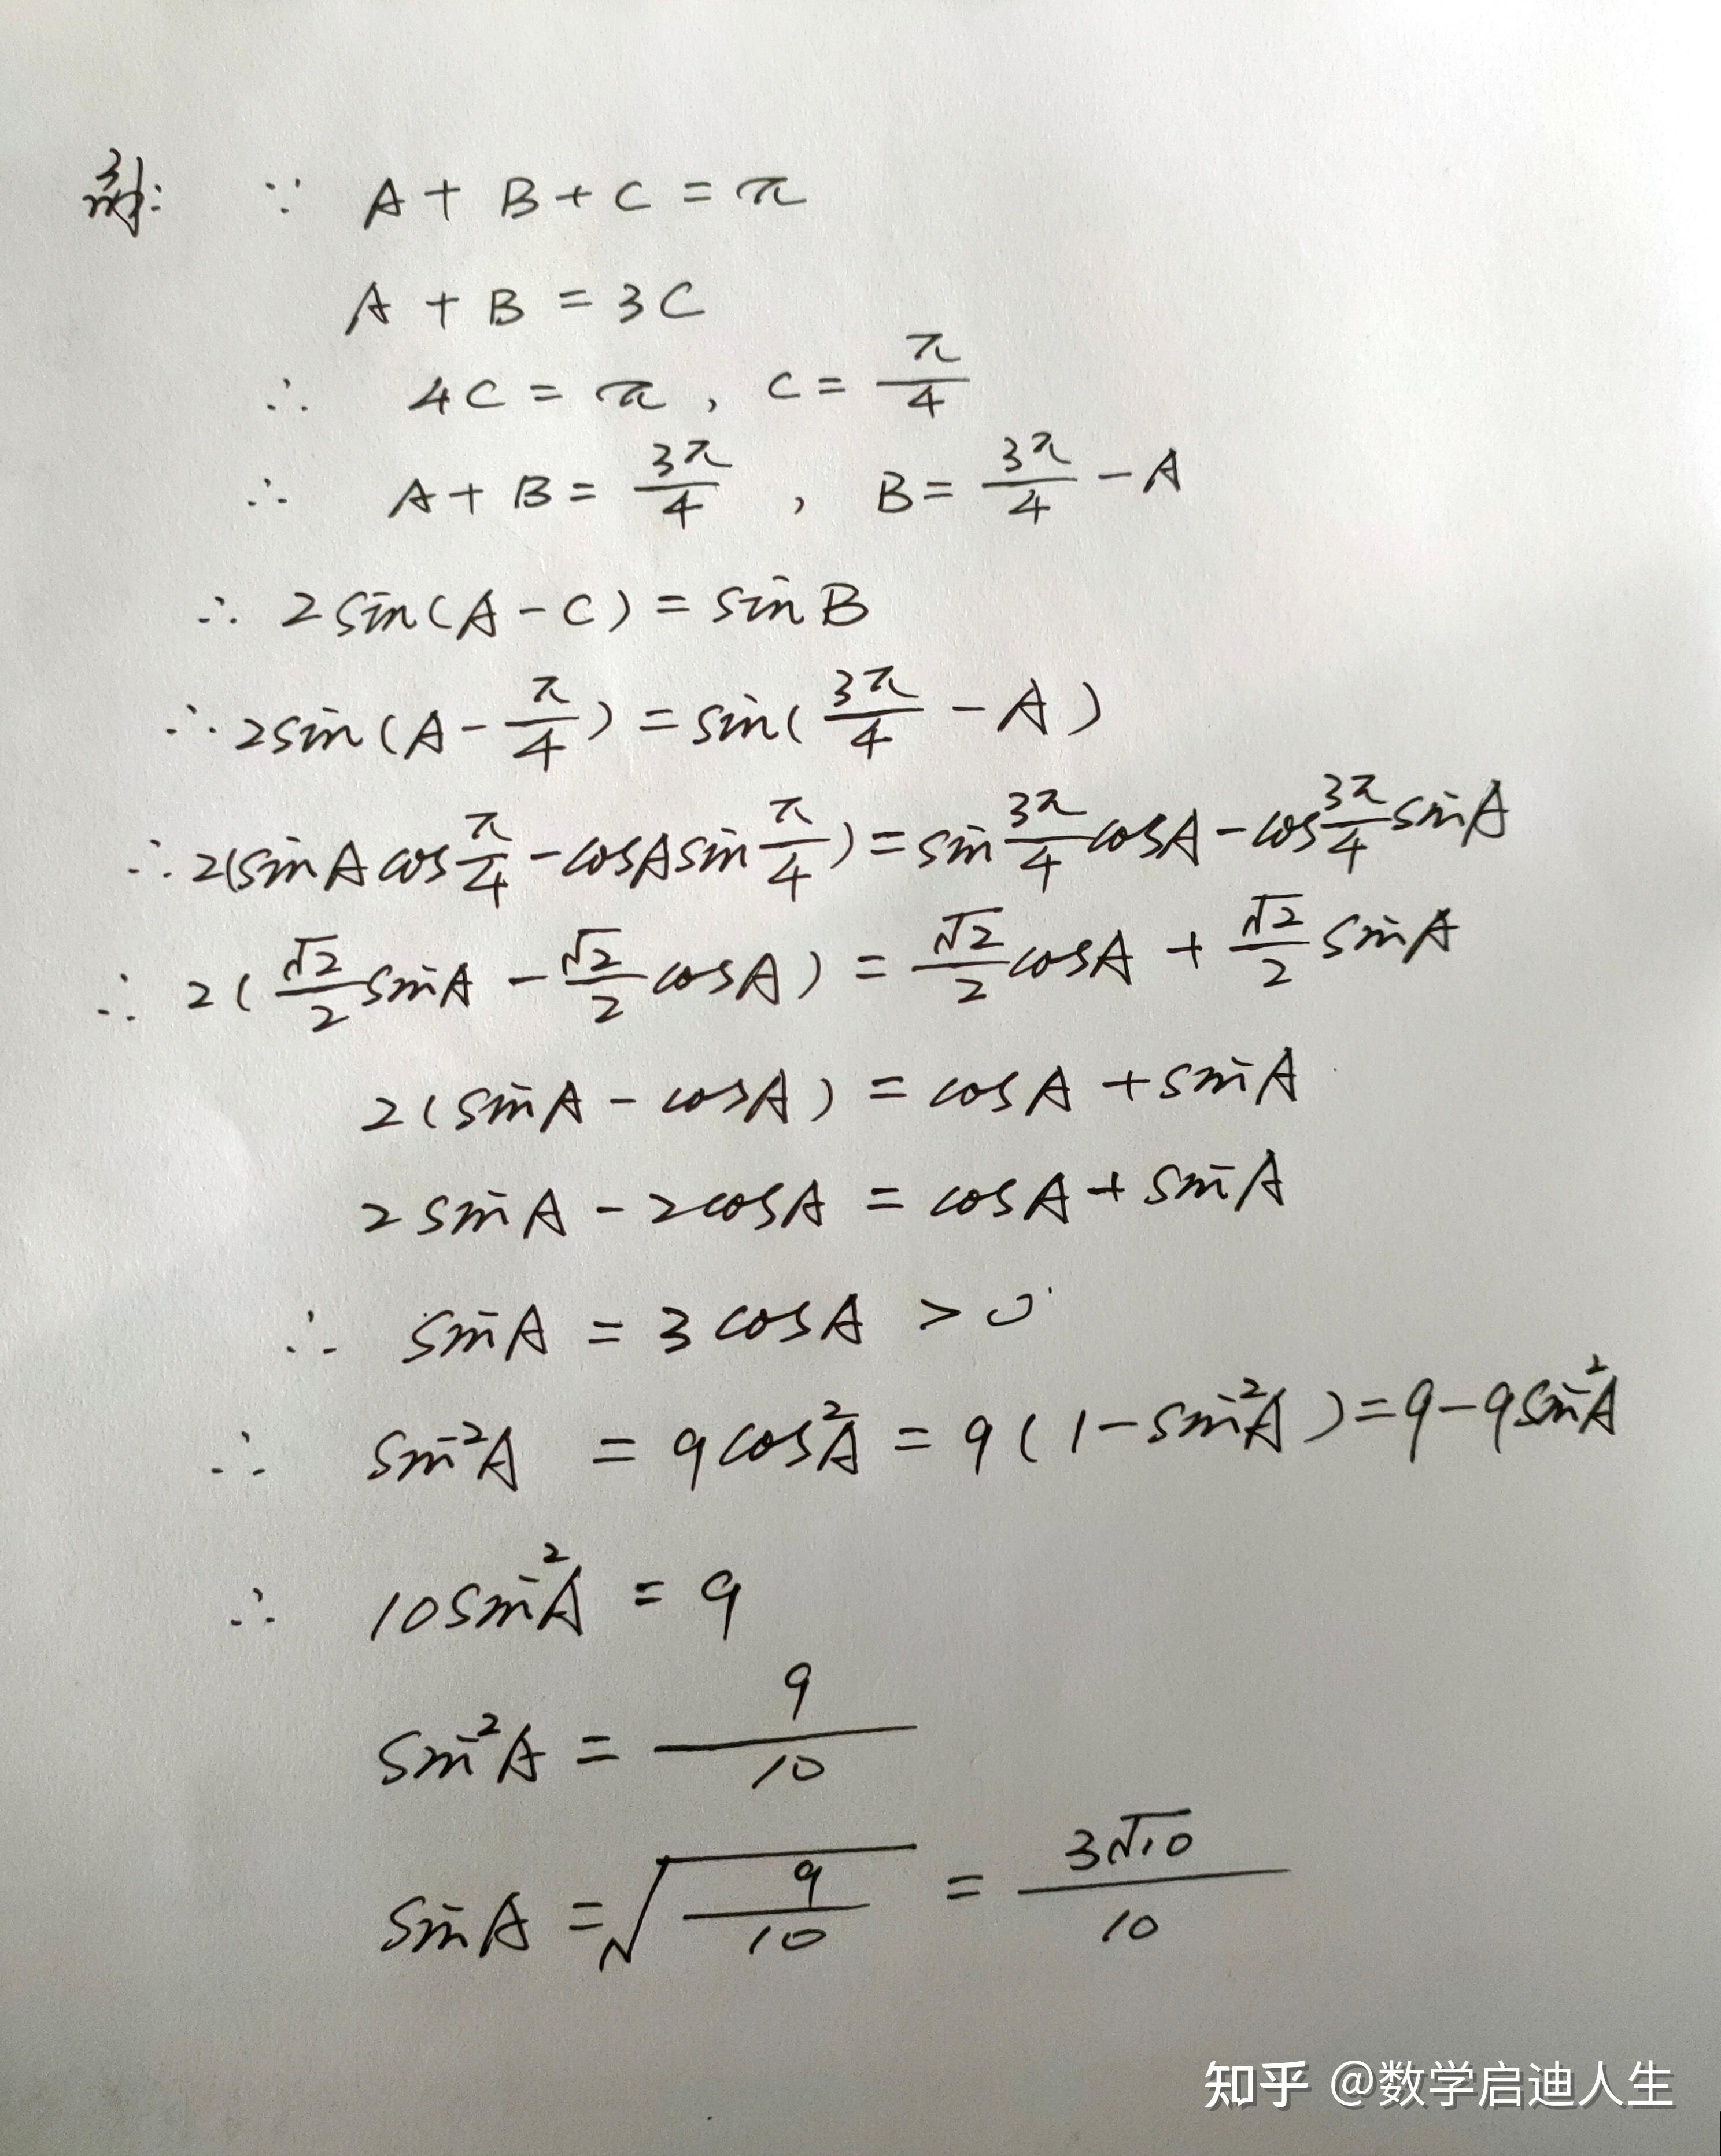 解: ∵ A + B + C = π
A + B = 3C
∴ 4C = π , C = π/4
∴ A + B = 3π/4 , B = 3π/4 - A
∴ 2sin(A - C) = sinB
∴ 2sin(A - π/4) = sin(3π/4 - A)
∴ 2(sinAcosπ/4 - cosAsinπ/4) = sin3π/4cosA - cos3π/4sinA
∴ 2(√2/2sinA - √2/2cosA) = √2/2cosA + √2/2sinA
2(sinA - cosA) = cosA + sinA
2sinA - 2cosA = cosA + sinA
∴ sinA = 3cosA > 0
∴ sin²A = 9cos²A = 9(1 - sin²A) = 9 - 9sin²A
∴ 10sin²A = 9
sin²A = 9/10
sinA = √(9/10) = 3√10/10
知乎 @数学启迪人生